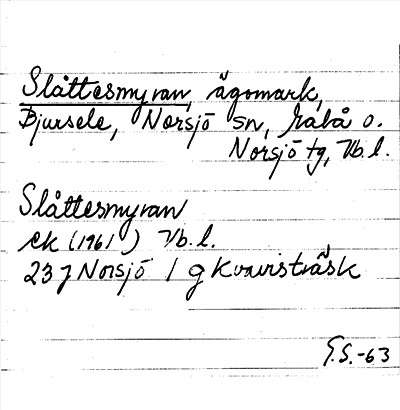 Slåttesmyran, ägomark,
Bjursele, Norsjö sn, Malå o.
Norsjö tg, Vb. l.
Slåttesmyran
ek (1961) Vb. l.
23 J Norsjö 1 g Kvavisträsk
G.S.-63